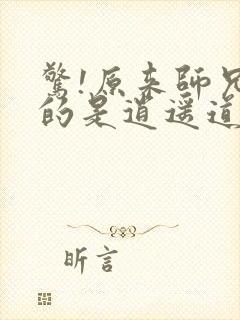 驚!原来師兄
的是道遥道
昕言